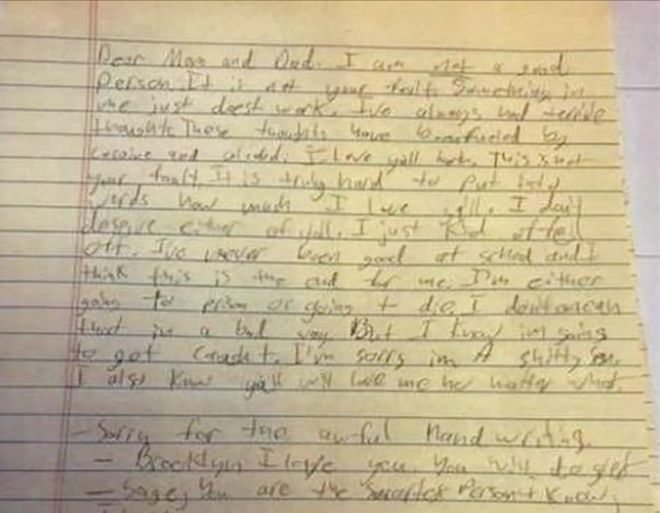 Dear Mom and Dad. I am not a good
Person It is not your fault Something in
me just doest work. I've always had terrible
thoughts These thoughts have been fueled by
cocaine and alcohol. I love yall both. This is not
your fault. It is truly hard to put into
words how much I love yall. I don't
deserve either of yall. I just kind of fell
off. I've never been good at school and I
think this is the end for me. I'm either
going to prison or going to die. I dont mean
that in a bad way But I know im going
to get caught. I'm sorry im A shitty Son.
I also know yall will love me no matter what.
- Sorry for the awful handwriting.
- Brooklyn I love you. You will do
- Sage, You are the Smartest Person I know,